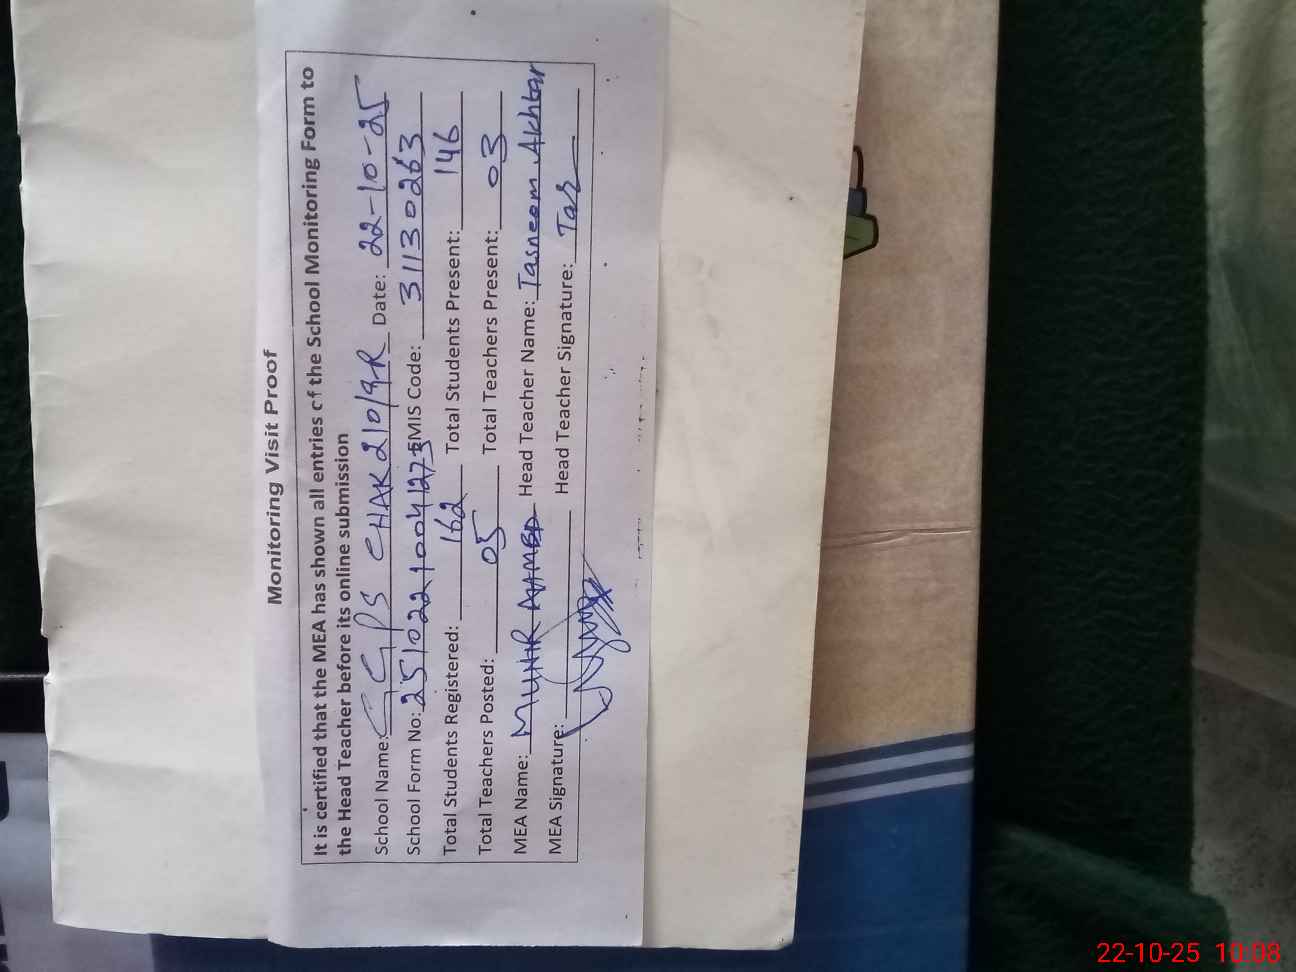 Monitoring Visit Proof
It is certified that the MEA has shown all entries of the School Monitoring Form to
the Head Teacher before its online submission
School Name: GGPS CHAK 210/9R Date: 22-10-25
School Form No: 25102210041273 EMIS Code: 31130263
Total Students Registered: 162 Total Students Present: 146
Total Teachers Posted: 05 Total Teachers Present: 03
MEA Name: MUNIR AHMED Head Teacher Name: Tasneem Akhtar
MEA Signature: Head Teacher Signature: Tas
22-10-25 10:08